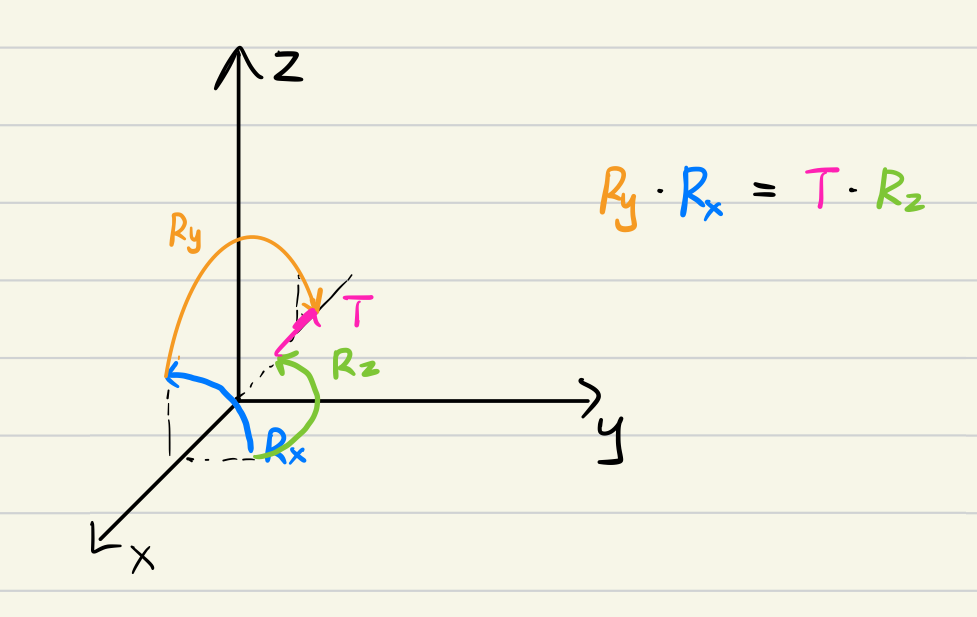 z
Ry · Rx = T · Rz
Ry
T
Rz
y
Rx
x